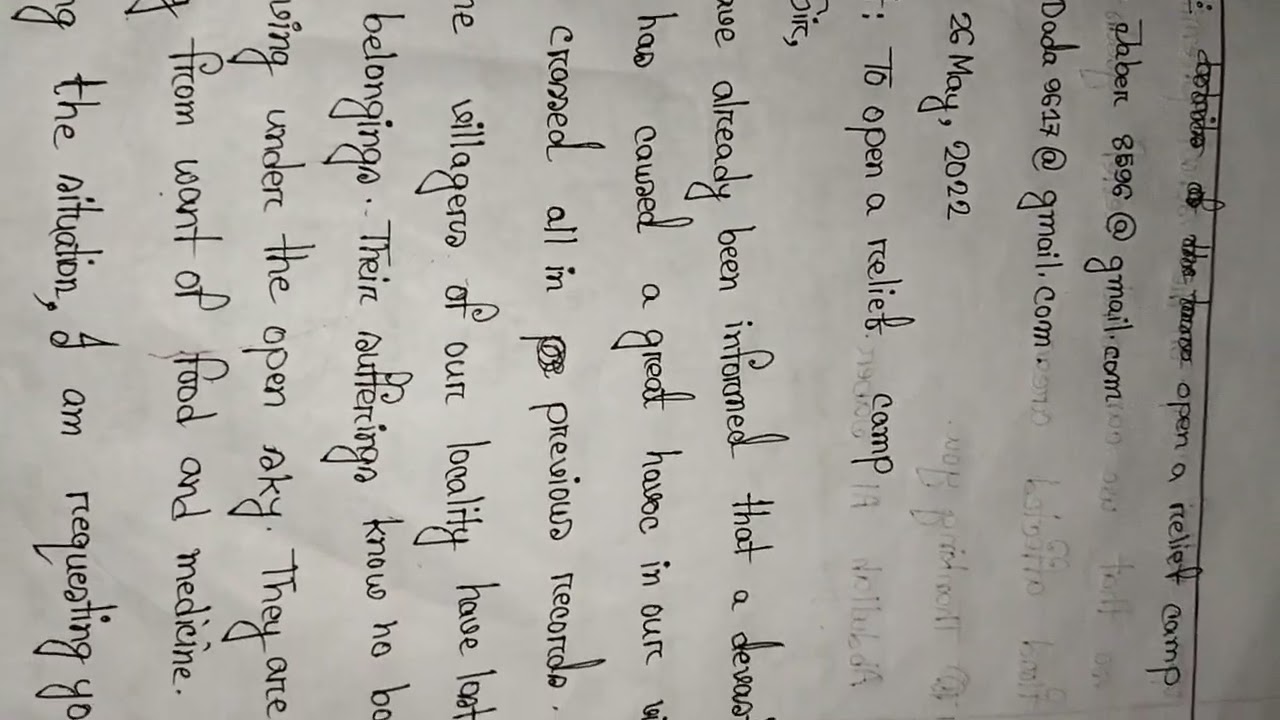 open a relief camp
Jaber 8596@gmail.com
Dada 9617@gmail.com
26 May, 2022
: To open a relief camp
Sir,
ave already been informed that a devas
has caused a great havoc in our vi
crossed all in previous records.
he villagers of our locality have lost
belongings. Their sufferings know no bo
ving under the open sky. They are
from want of food and medicine.
ng the situation, I am requesting yo